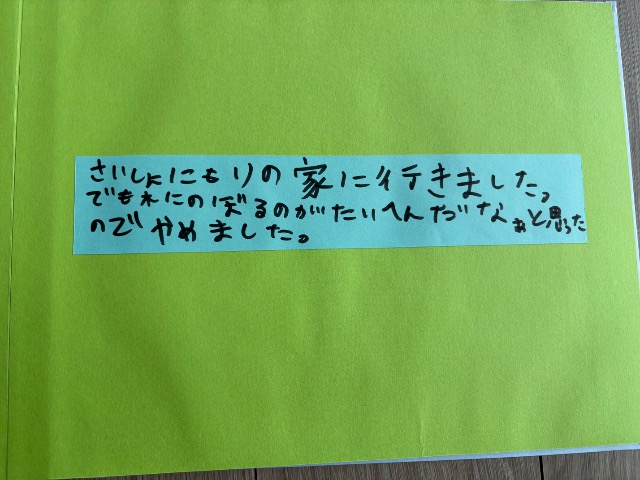 さいしょにもりの家に行きました。
でも木にのぼるのがたいへんだなぁと思った
のでやめました。